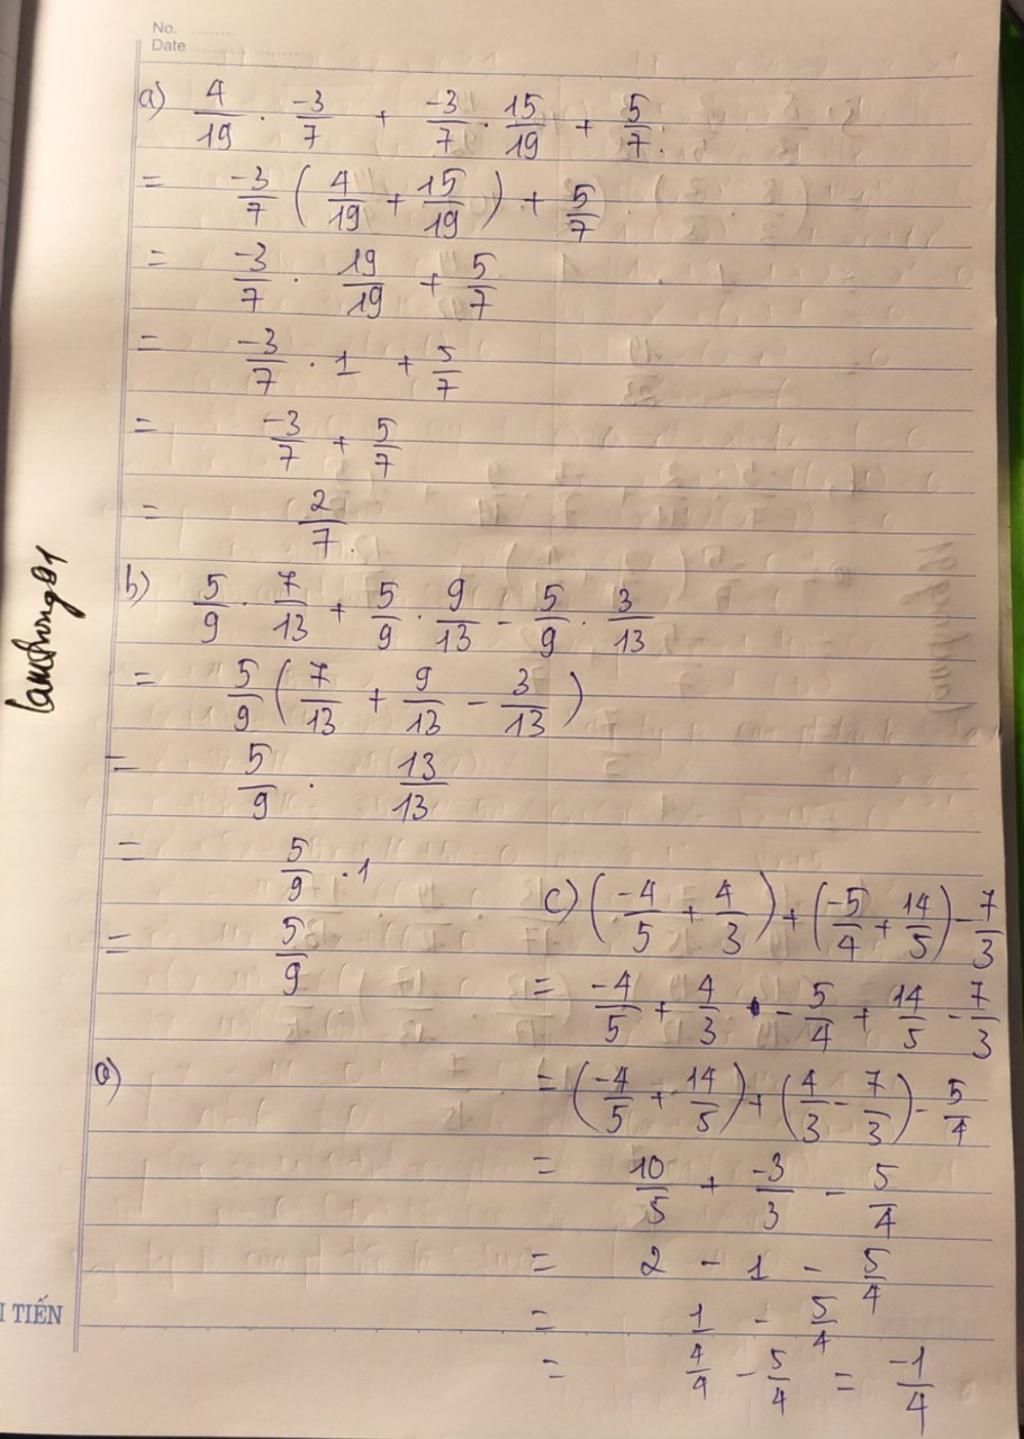 No. ........
Date ................
a) 4/19 . -3/7 + -3/7 . 15/19 + 5/7.
= -3/7 (4/19 + 15/19) + 5/7
= -3/7 . 19/19 + 5/7
= -3/7 . 1 + 5/7
= -3/7 + 5/7
= 2/7.
b) 5/9 . 7/13 + 5/9 . 9/13 - 5/9 . 3/13
= 5/9 (7/13 + 9/13 - 3/13)
= 5/9 . 13/13
= 5/9 . 1
= 5/9
c) (-4/5 + 4/3) + (-5/4 + 14/5) - 7/3
= -4/5 + 4/3 - 5/4 + 14/5 - 7/3
= (-4/5 + 14/5) + (4/3 - 7/3) - 5/4
= 10/5 + -3/3 - 5/4
= 2 - 1 - 5/4
= 1 - 5/4
= 4/4 - 5/4 = -1/4
I TIẾN